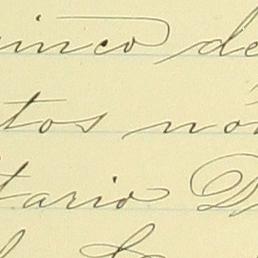 cinco de
tos nó
tario D